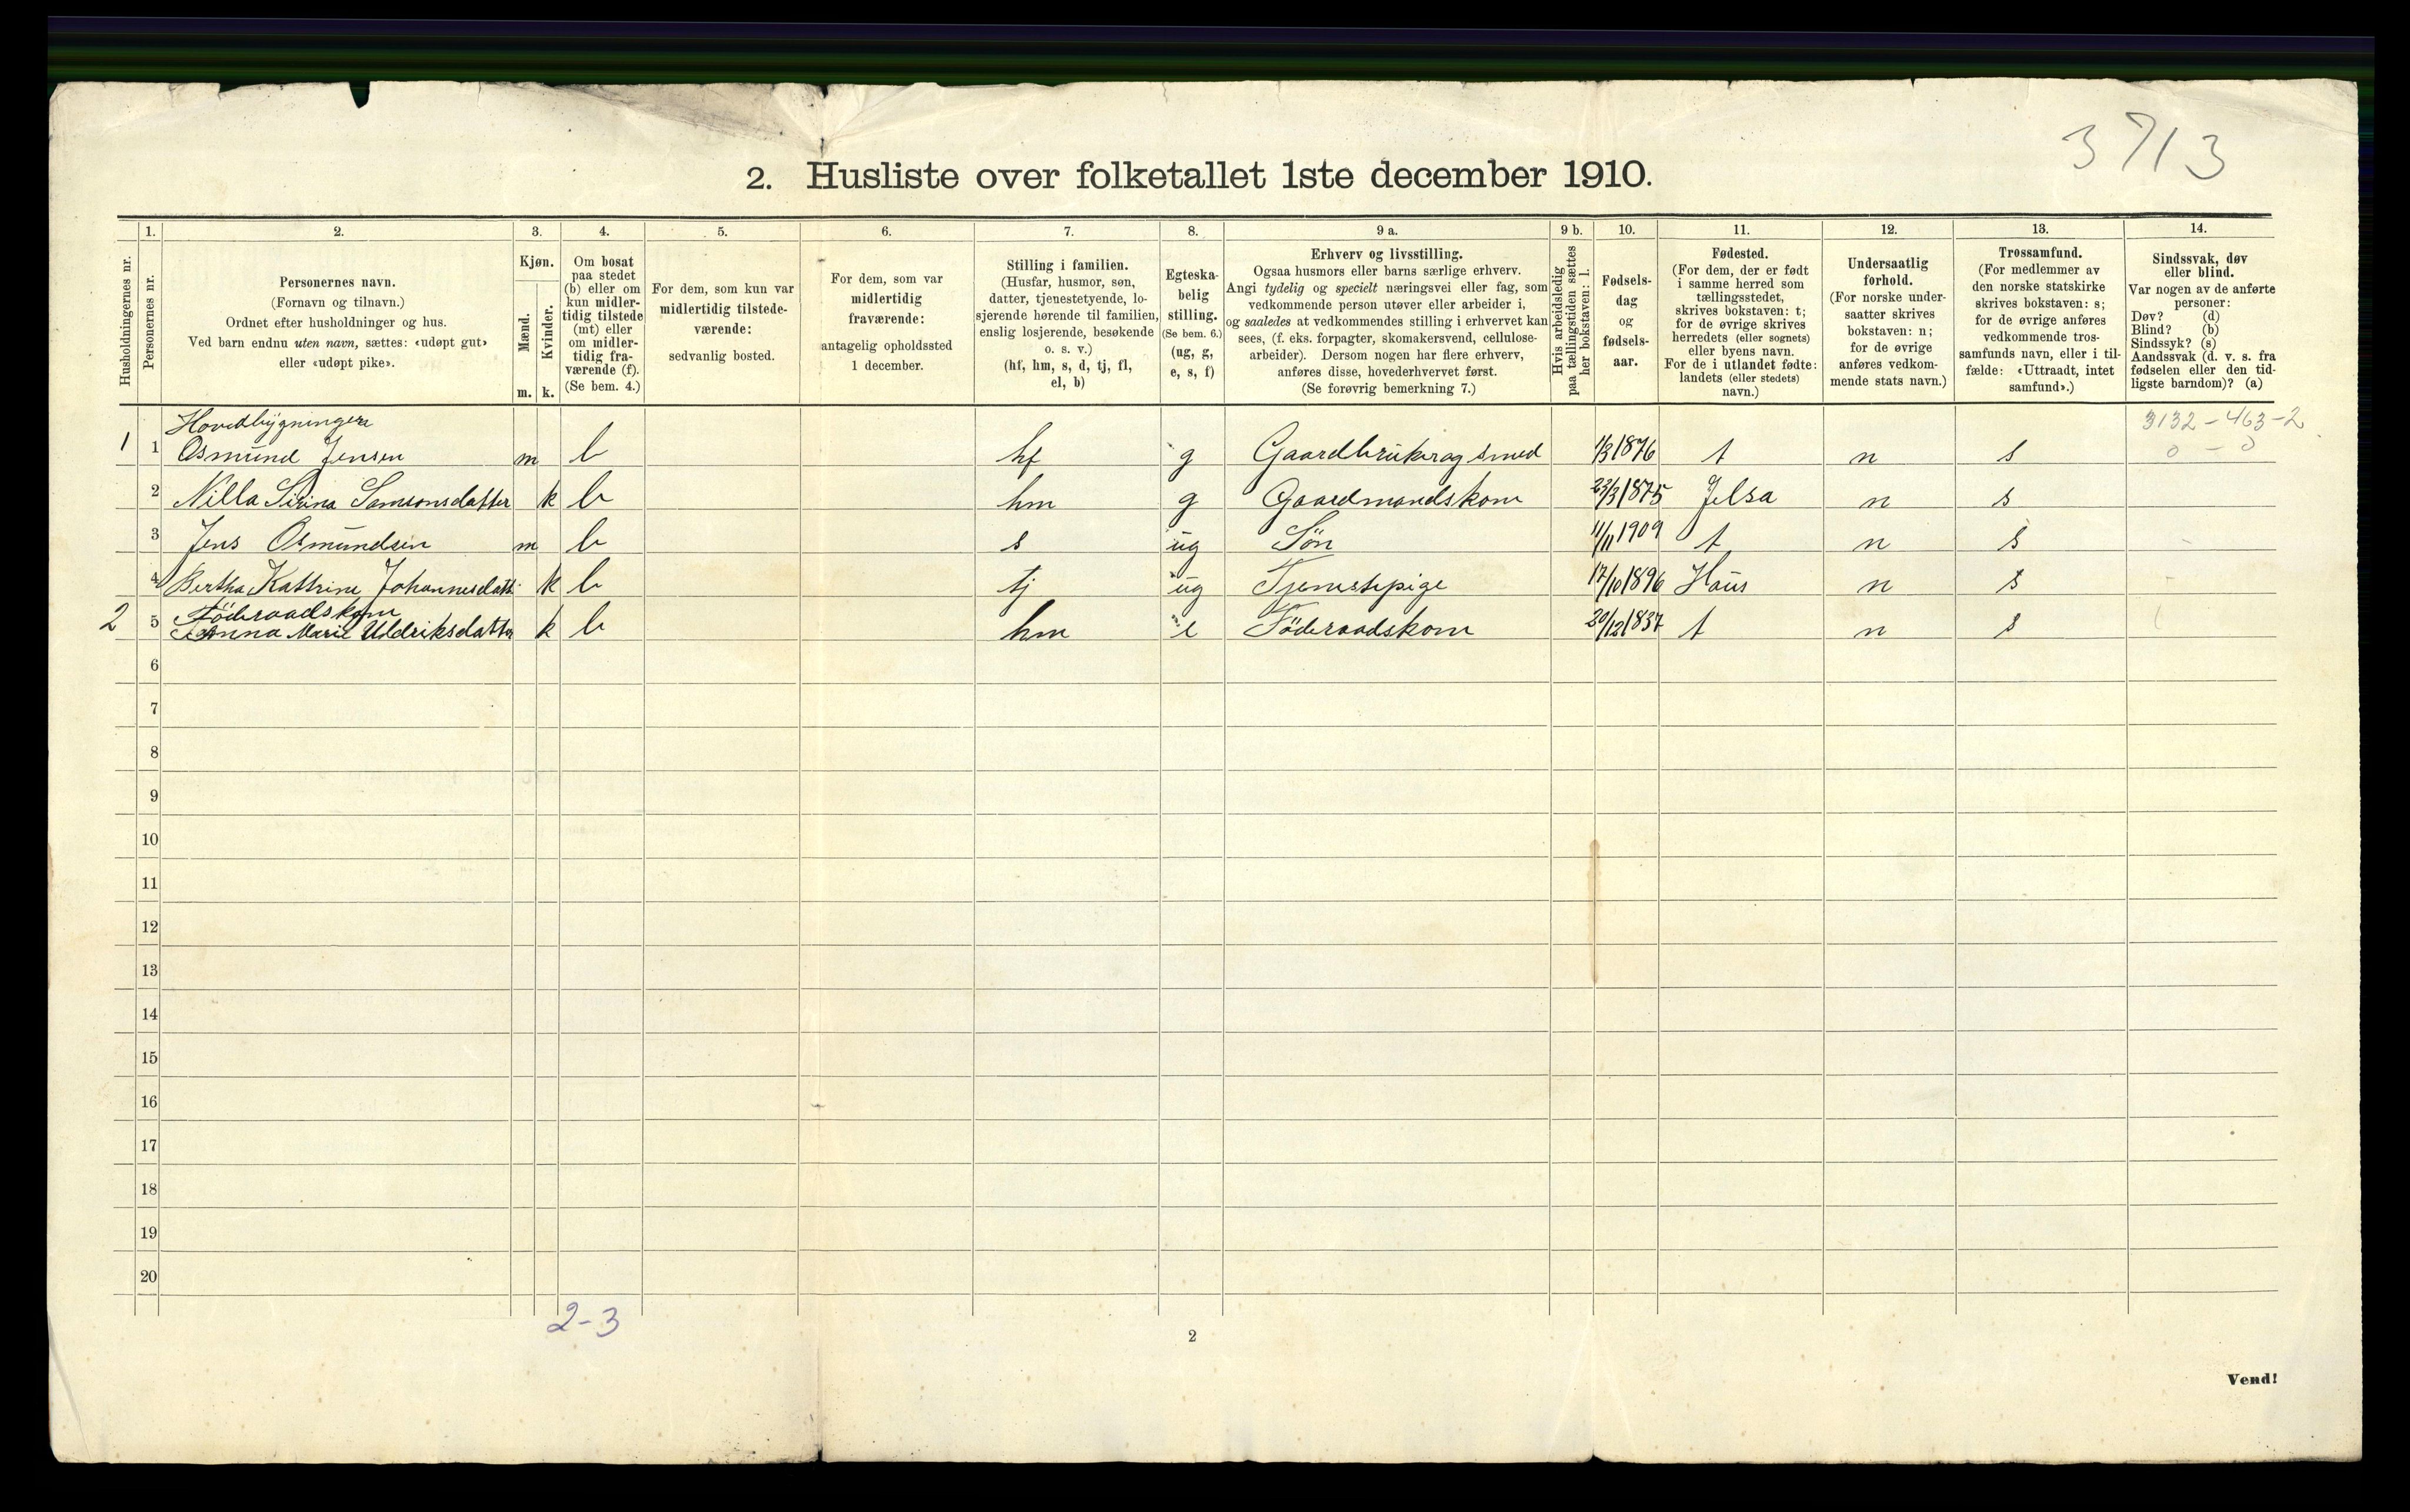 3713
2. Husliste over folketallet 1ste december 1910.
Husholdningernes nr.
1.
Personernes nr.
2.
Personernes navn.
(Fornavn og tilnavn.)
Ordnet efter husholdninger og hus.
Ved barn endnu uten navn, sættes: «udøpt gut»
eller «udøpt pike».
3.
Kjøn.
Mænd.
Kvinder.
m. k.
4.
Om bosat
paa stedet
(b) eller om
kun midler-
tidig tilstede
(mt) eller
om midler-
tidig fra-
værende (f).
(Se bem. 4.)
5.
For dem, som kun var
midlertidig tilstede-
værende:
sedvanlig bosted.
6.
For dem, som var
midlertidig
fraværende:
antagelig opholdssted
1 december.
7.
Stilling i familien.
(Husfar, husmor, søn,
datter, tjenestetyende, lo-
sjerende hørende til familien,
enslig losjerende, besøkende
o. s. v.)
(hf, hm, s, d, tj, fl,
el, b)
8.
Egteska-
belig
stilling.
(Se bem. 6.)
(ug, g,
e, s, f)
9 a.
Erhverv og livsstilling.
Ogsaa husmors eller barns særlige erhverv.
Angi tydelig og specielt næringsvei eller fag, som
vedkommende person utøver eller arbeider i,
og saaledes at vedkommendes stilling i erhvervet kan
sees, (f. eks. forpagter, skomakersvend, cellulose-
arbeider). Dersom nogen har flere erhverv,
anføres disse, hovederhvervet først.
(Se forøvrig bemerkning 7.)
9 b.
Hvis arbeidsledig
paa tællingstiden sættes
her bokstaven: l.
10.
Fødsels-
dag
og
fødsels-
aar.
11.
Fødested.
(For dem, der er født
i samme herred som
tællingsstedet,
skrives bokstaven: t;
for de øvrige skrives
herredets (eller sognets)
eller byens navn.
For de i utlandet fødte:
landets (eller stedets)
navn.)
12.
Undersaatlig
forhold.
(For norske under-
saatter skrives
bokstaven: n;
for de øvrige
anføres vedkom-
mende stats navn.)
13.
Trossamfund.
(For medlemmer av
den norske statskirke
skrives bokstaven: s;
for de øvrige anføres
vedkommende tros-
samfunds navn, eller i til-
fælde: «Uttraadt, intet
samfund».)
14.
Sindssvak, døv
eller blind.
Var nogen av de anførte
personer:
Døv? (d)
Blind? (b)
Sindssyk? (s)
Aandssvak (d. v. s. fra
fødselen eller den tid-
ligste barndom)? (a)
Hovedbygningen
3132-463-2
0-0
1 1 Osmund Jensen m b hf g Gaardbruker og smed 1/3 1876 t n s
2 Nilla Sirina Samsonsdatter k b hm g Gaardmandskone 23/3 1875 Jelsa n s
3 Jens Osmundsen m b s ug Sön 11/11 1909 t n s
4 Bertha Kattrine Johannesdatt. k b tj ug Tjenestepige 17/10 1896 Haus n s
Föderaadskone
2 5 Anna Marie Uldriksdatter k b hm e Föderaadskone 20/12 1837 t n s
6
7
8
9
10
11
12
13
14
15
16
17
18
19
20
2-3
2
Vend!